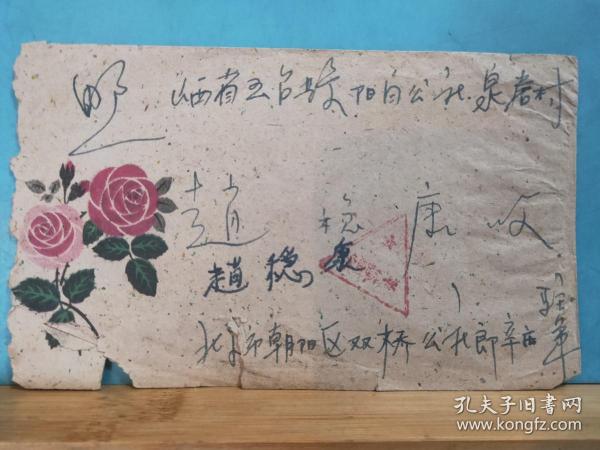 山西省五台县阳白公社泉岩村
趙 稳 康 收
趙 稳 康
北京市朝阳区双桥公社郎辛庄
孔夫子旧书网
www.kongfz.com